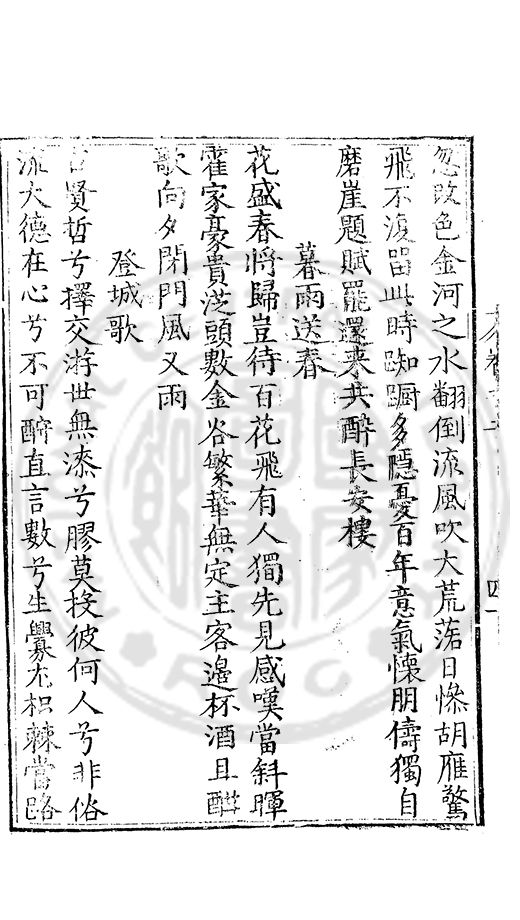 忽改色金河之水翻倒流風吹大荒落日慘胡雁驚
飛不復留此時踟躕多隱憂百年意氣懷朋儔獨自
磨崖題賦罷還来共醉長安樓
暮雨送春
花盛春將歸豈待百花飛有人獨先見感嘆當斜暉
霍家豪貴滿頭數金谷繁華無定主客邊杯酒且酣
歌向夕閉門風又雨
登城歌
古賢哲兮擇交游世無漆兮膠莫投彼何人兮非俗
流大德在心兮不可酧直言數兮生釁尤枳棘當路